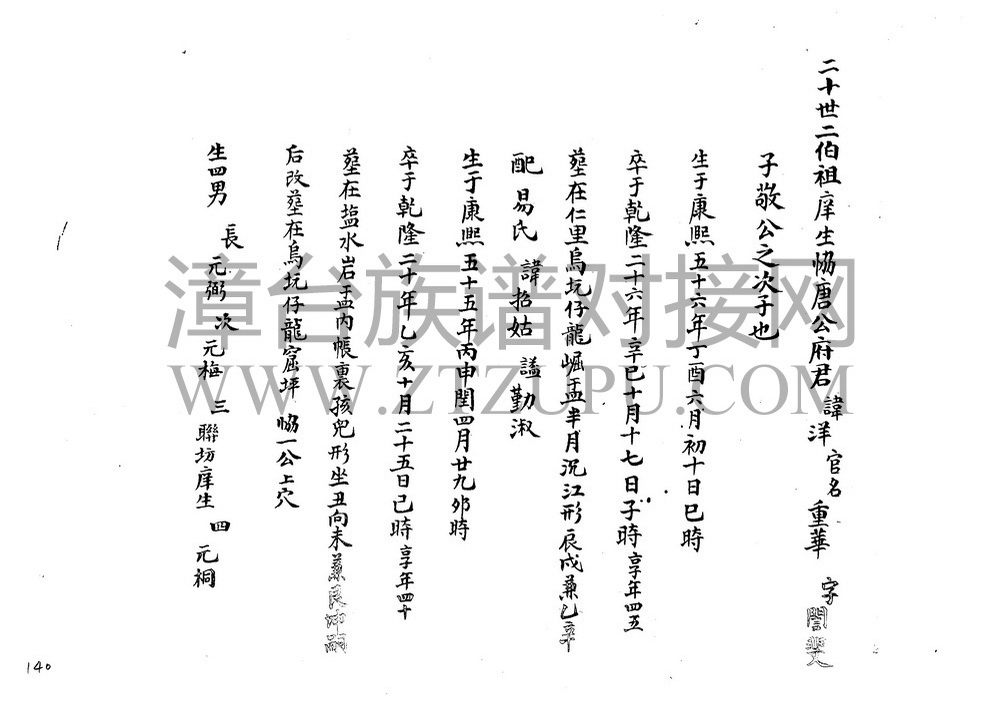 二十世二伯祖庠生恊唐公府君 諱洋 官名 重華 字
子敬公之次子也
生于康熙五十六年丁酉六月初十日巳時
卒于乾隆二十六年辛巳十月十七日子時享年四五
塟在仁里烏坑仔龍崛盂半月沉江形辰戌兼乙辛
配易氏 諱招姑 謚勤淑
生于康熙五十五年丙申閏四月廿九卯時
卒于乾隆二十年乙亥十月二十五日巳時享年四十
塟在塩水岩盂内帳裏孩兒形坐丑向未兼艮坤
后改塟在烏坑仔龍窟坪 恊一公上穴
生四男 長元弼 次元梅 三聯坊庠生 四元祠
漳台族谱对接网
WWW.ZTZUPU.COM
140